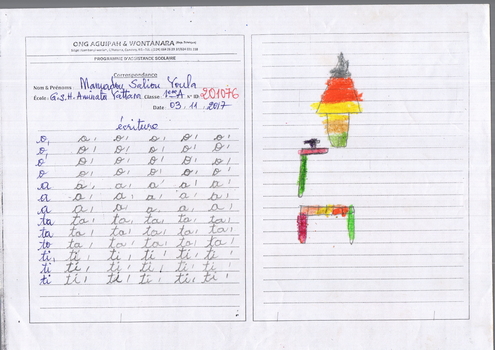 ONG AGUIPAH & WONTANARA
PROGRAMME D'ASSISTANCE SCOLAIRE
Correspondance
Nom & Prénoms Mamadou Saliou Youla
École : G.S.H. Aminata Yattara Classe 1ère A N° ID : 201076
Date : 03.11.2017
écriture
o, o, o, o, o, o,
o, o, o, o, o, o,
o, o, o, o, o, o,
o, o, o, o, o, o,
a a, a, a, a, a,
a a, a, a, a, a,
a a, a, a, a, a,
ta ta, ta, ta, ta, ta,
ta ta, ta, ta, ta, ta,
ta ta, ta, ta, ta, ta,
ti, ti, ti, ti, ti, ti,
ti ti, ti, ti, ti, ti,
ti ti, ti, ti, ti, ti,